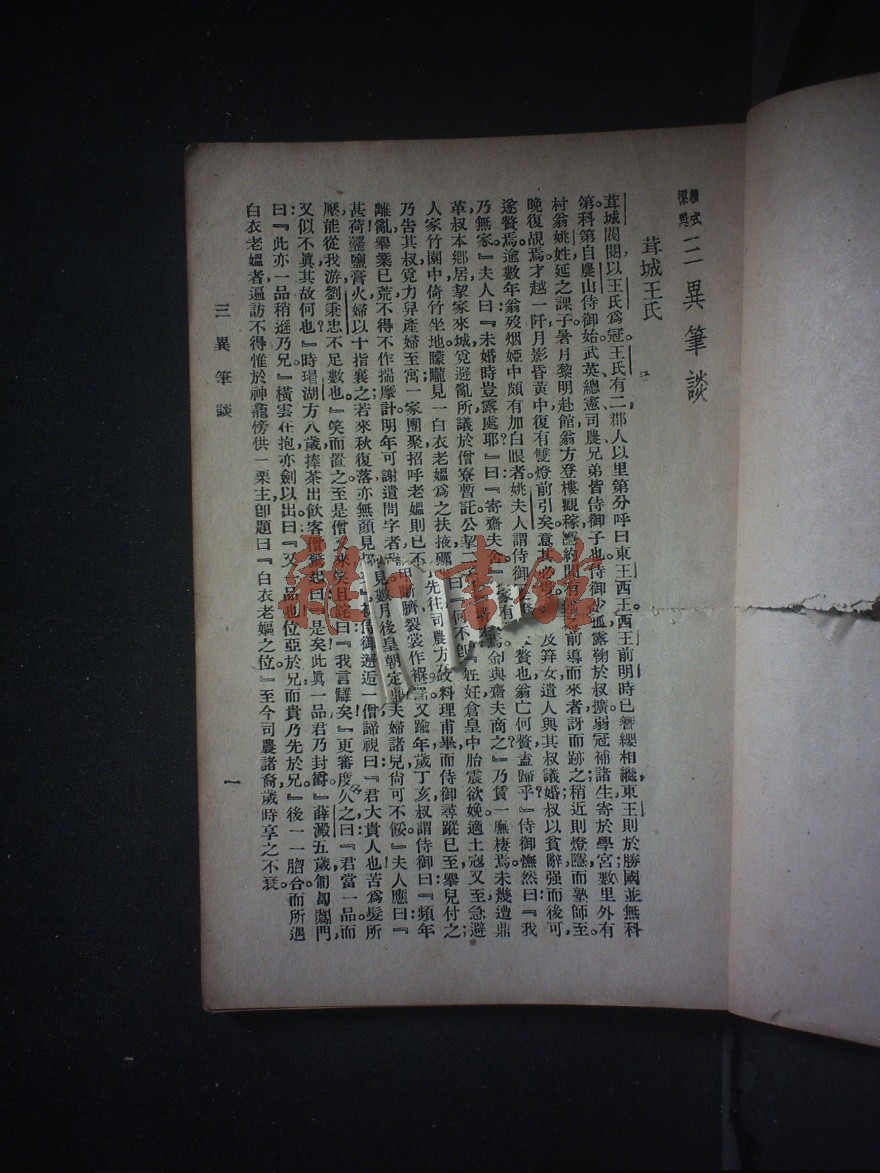 三異筆談
茸城王氏
茸城閥閱以王氏爲冠。王氏有二郡人以里第分呼曰東王西王西王前明時已簪纓相繼東王則於勝國並無科
第。科第自農山侍御始武英總憲司農兄弟皆侍御子也。侍御少孤露鞠於叔擴弱冠補諸生寄於學宮數里外有
村翁姚姓延之課子暑月黎明赴館翁方登樓觀稼
前導而來者訝而跡之稍近則燈隱而塾師至。
晚復覘焉。才越一阡月影昏黃中復有雙燈前引矣意其
及笄女遣人與其叔議婚叔以貧辭强而後可
遂贅焉。逾數年翁歿烟婭中頗有加白眼者姚夫人謂侍御
贅也翁亡何贅盍歸乎』侍御憮然曰『我
乃無家』夫人曰『未婚時豈露處耶』曰『寄齋夫舍』
與齋夫商之』乃賃一廡棲焉未幾遭鼎
革叔本鄉居挈家來城覓避亂所議於僧寮暫託公挈二子
妊倉皇中胎震欲娩適土寇又至急避
人家竹園中倚竹坐地朦朧見一白衣老嫗爲之扶掖
先往司農方
料理甫畢而侍御尋蹤已至舉兒付之
乃告其叔覓力舁產婦至寓一家團聚招呼老嫗則已不
斷臍裂裳作褓
又踰年歲丁亥叔謂侍御曰『頻年
離亂舉業已荒不得不作揣摩計明年可謝遣問字者
見數月後皇朝定鼎夫婦諸兒尙可不餒』夫人應曰『
甚荷虀鹽膏火婦以十指襄之若來秋復落亦無顏見
侍御邂逅一僧諦視曰『君大貴人也苦爲髮所
壓能從我游劉秉忠不足數也』笑而置之至是僧
來笑且詫曰『我言讎矣』更審度久之曰『君當一品而
又似不眞其故何也』時瑁湖方八歲捧茶出飮客僧
起曰『是矣此眞一品君乃封爵』薛澱五歲匍匐闖門
曰『此亦一品稍遜乃兄』橫雲在抱亦劍以出曰『又一品也位亞於兄而貴乃先於兄』後一一脗合而所遇
白衣老嫗者遍訪不得惟於神龕傍供一栗主卽題曰『白衣老嫗之位』至今司農諸裔歲時享之不衰
三異筆談
一